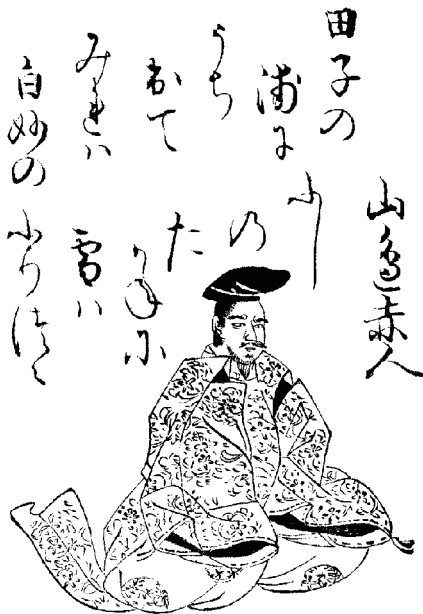 山邊赤人
田子の
浦に
うち
出て
みれハ
白妙の
ふし
の
た
かねに
雪ハ
ふりつゝ